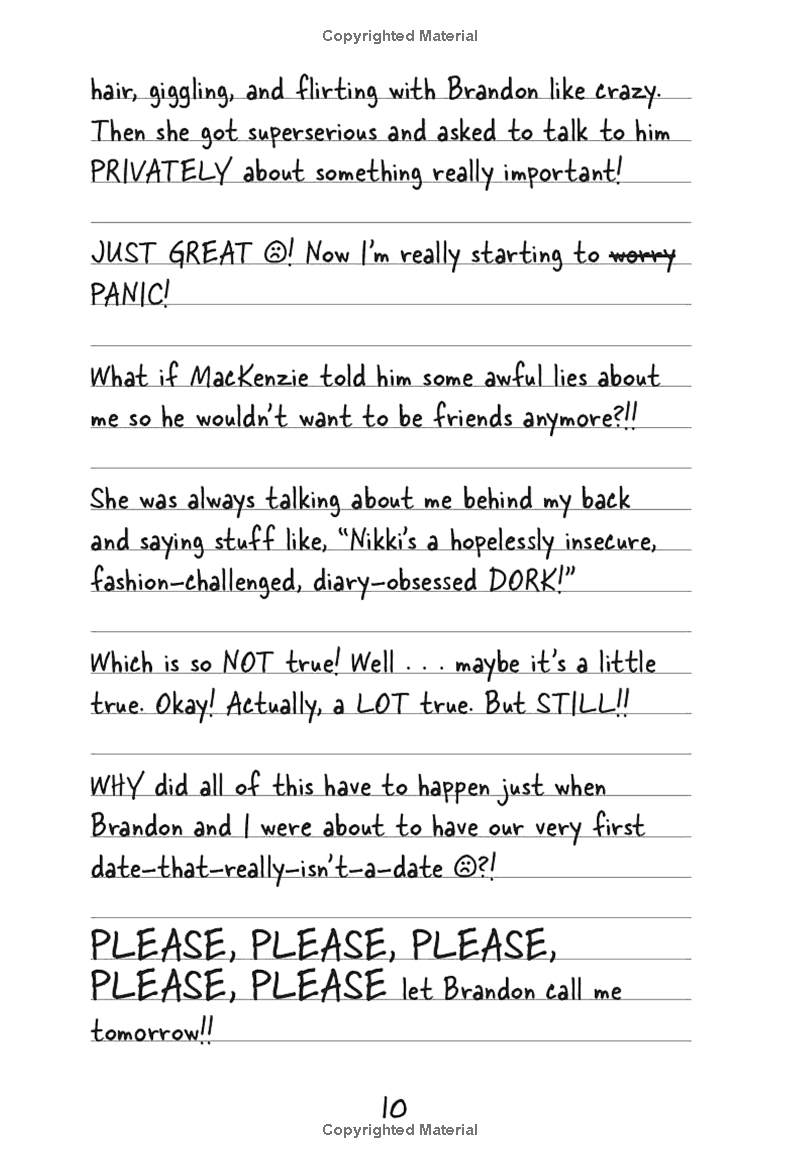 Copyrighted Material
hair, giggling, and flirting with Brandon like crazy.
Then she got superserious and asked to talk to him
PRIVATELY about something really important!
JUST GREAT ☹! Now I'm really starting to ~~worry~~
PANIC!
What if MacKenzie told him some awful lies about
me so he wouldn't want to be friends anymore?!!
She was always talking about me behind my back
and saying stuff like, “Nikki's a hopelessly insecure,
fashion–challenged, diary–obsessed DORK!”
Which is so NOT true! Well . . . maybe it's a little
true. Okay! Actually, a LOT true. But STILL!!
WHY did all of this have to happen just when
Brandon and I were about to have our very first
date–that–really–isn't–a–date ☹?!
PLEASE, PLEASE, PLEASE,
PLEASE, PLEASE let Brandon call me
tomorrow!!
10
Copyrighted Material